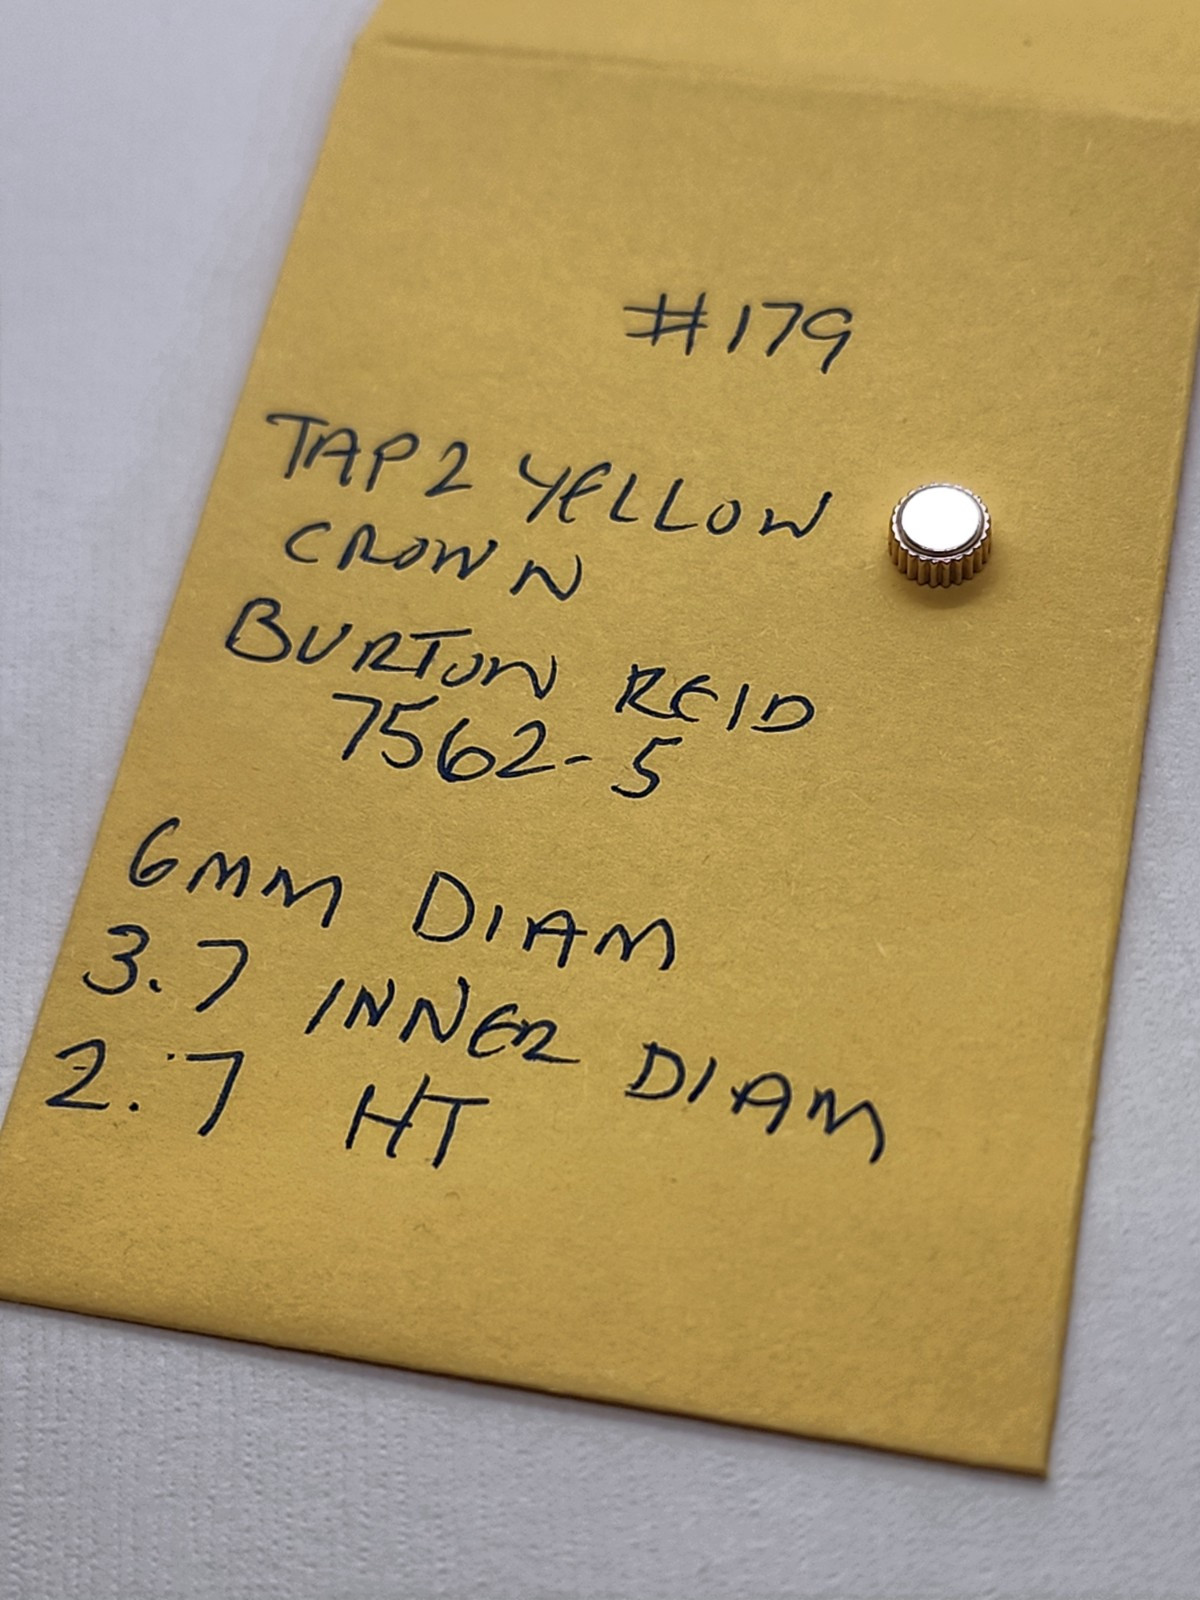 #179
TAP 2 YELLOW
CROWN
BURTON REID
7562-5
6MM DIAM
3.7 INNER DIAM
2.7 HT